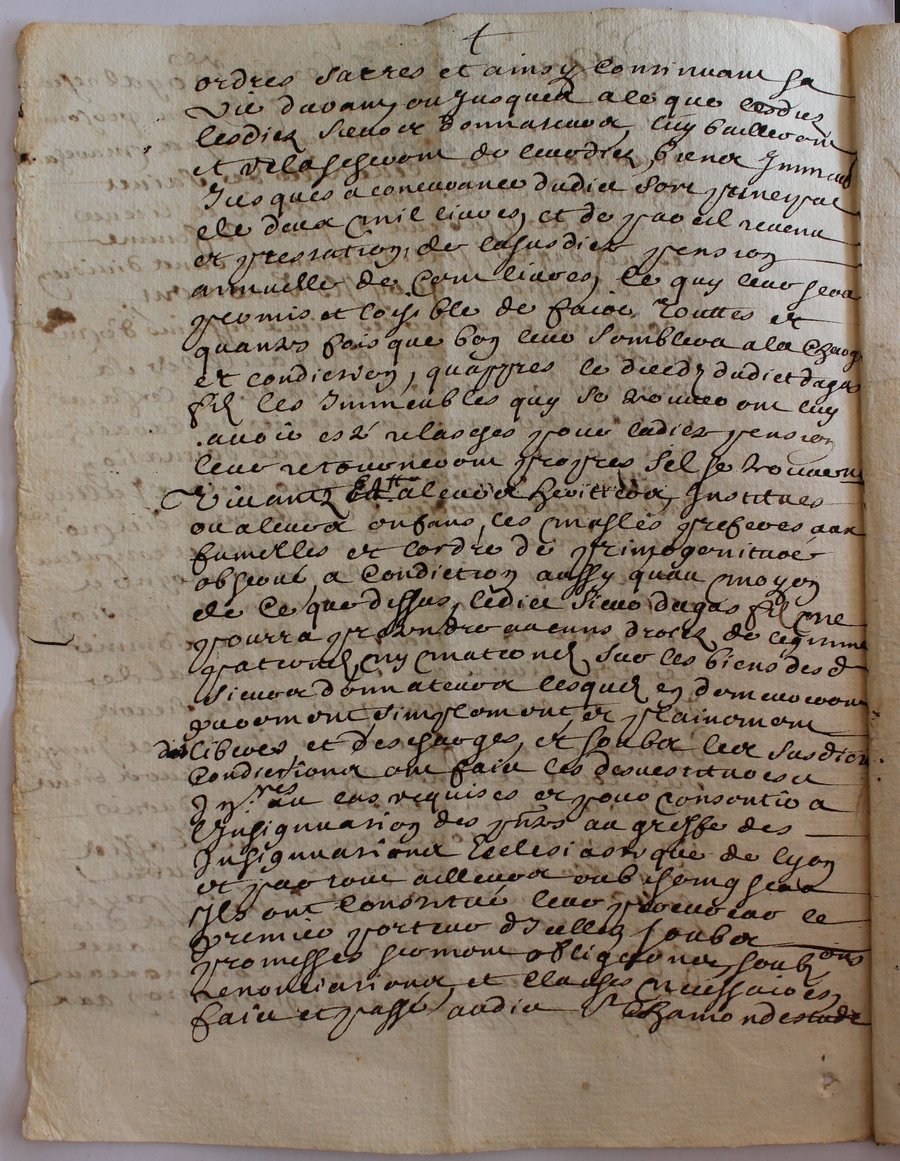 ordres sacres et ainsy continuant sa
vie durant, ou jusques a ce que lesdicts
lesdicts sieurs donnateurs, luy bailleront
et relascheront de leursdicts biens Immeub
Jusques a concurance dudict sort principal
de deux mil livres, et de pareil revenu
et prestation, de lasusdicte pension
annuelle de Cent livres, ce quy leur sera
permis et loisible de faire touttes et
quantes fois que bon leur semblera a la charge
et condiction, quappres le deceds dudict dagas
fils les Immeubles quy se trouveront luy
avoir esté relasches pour ladicte pension
leur retourneront propres sil se trouvent
vivantz Et a leurs heritiers, Institues
ou a leurs enfans, les masles preferes aux
fumelles et lordre de primogeniture
observé, a Condiction aussy quau moyen
de Ce que dessus, ledict sieur dagas fils ne
pourra pretendre aucuns droicts de legitime
paternels ny maternels sur les biens desd
sieurs donnateurs lesquels en demeureront
purement simplement, et plainement
liberes et descharges, et soubs les susdictes
Condictions ont faict les desvestitures a
au cas requises et pour consentir a
l'Insignuation des pntes au greffe des
Insignuations Ecclesiastique de lyon
et par tout ailleurs ou besoing sera
Ils ont Constitué leur procureur le
premier porteur d'Icelles soubs
promesses serment obligations, soubsons
renonciations, et clauses necessaires,
faict et passé audict St Chamond estude